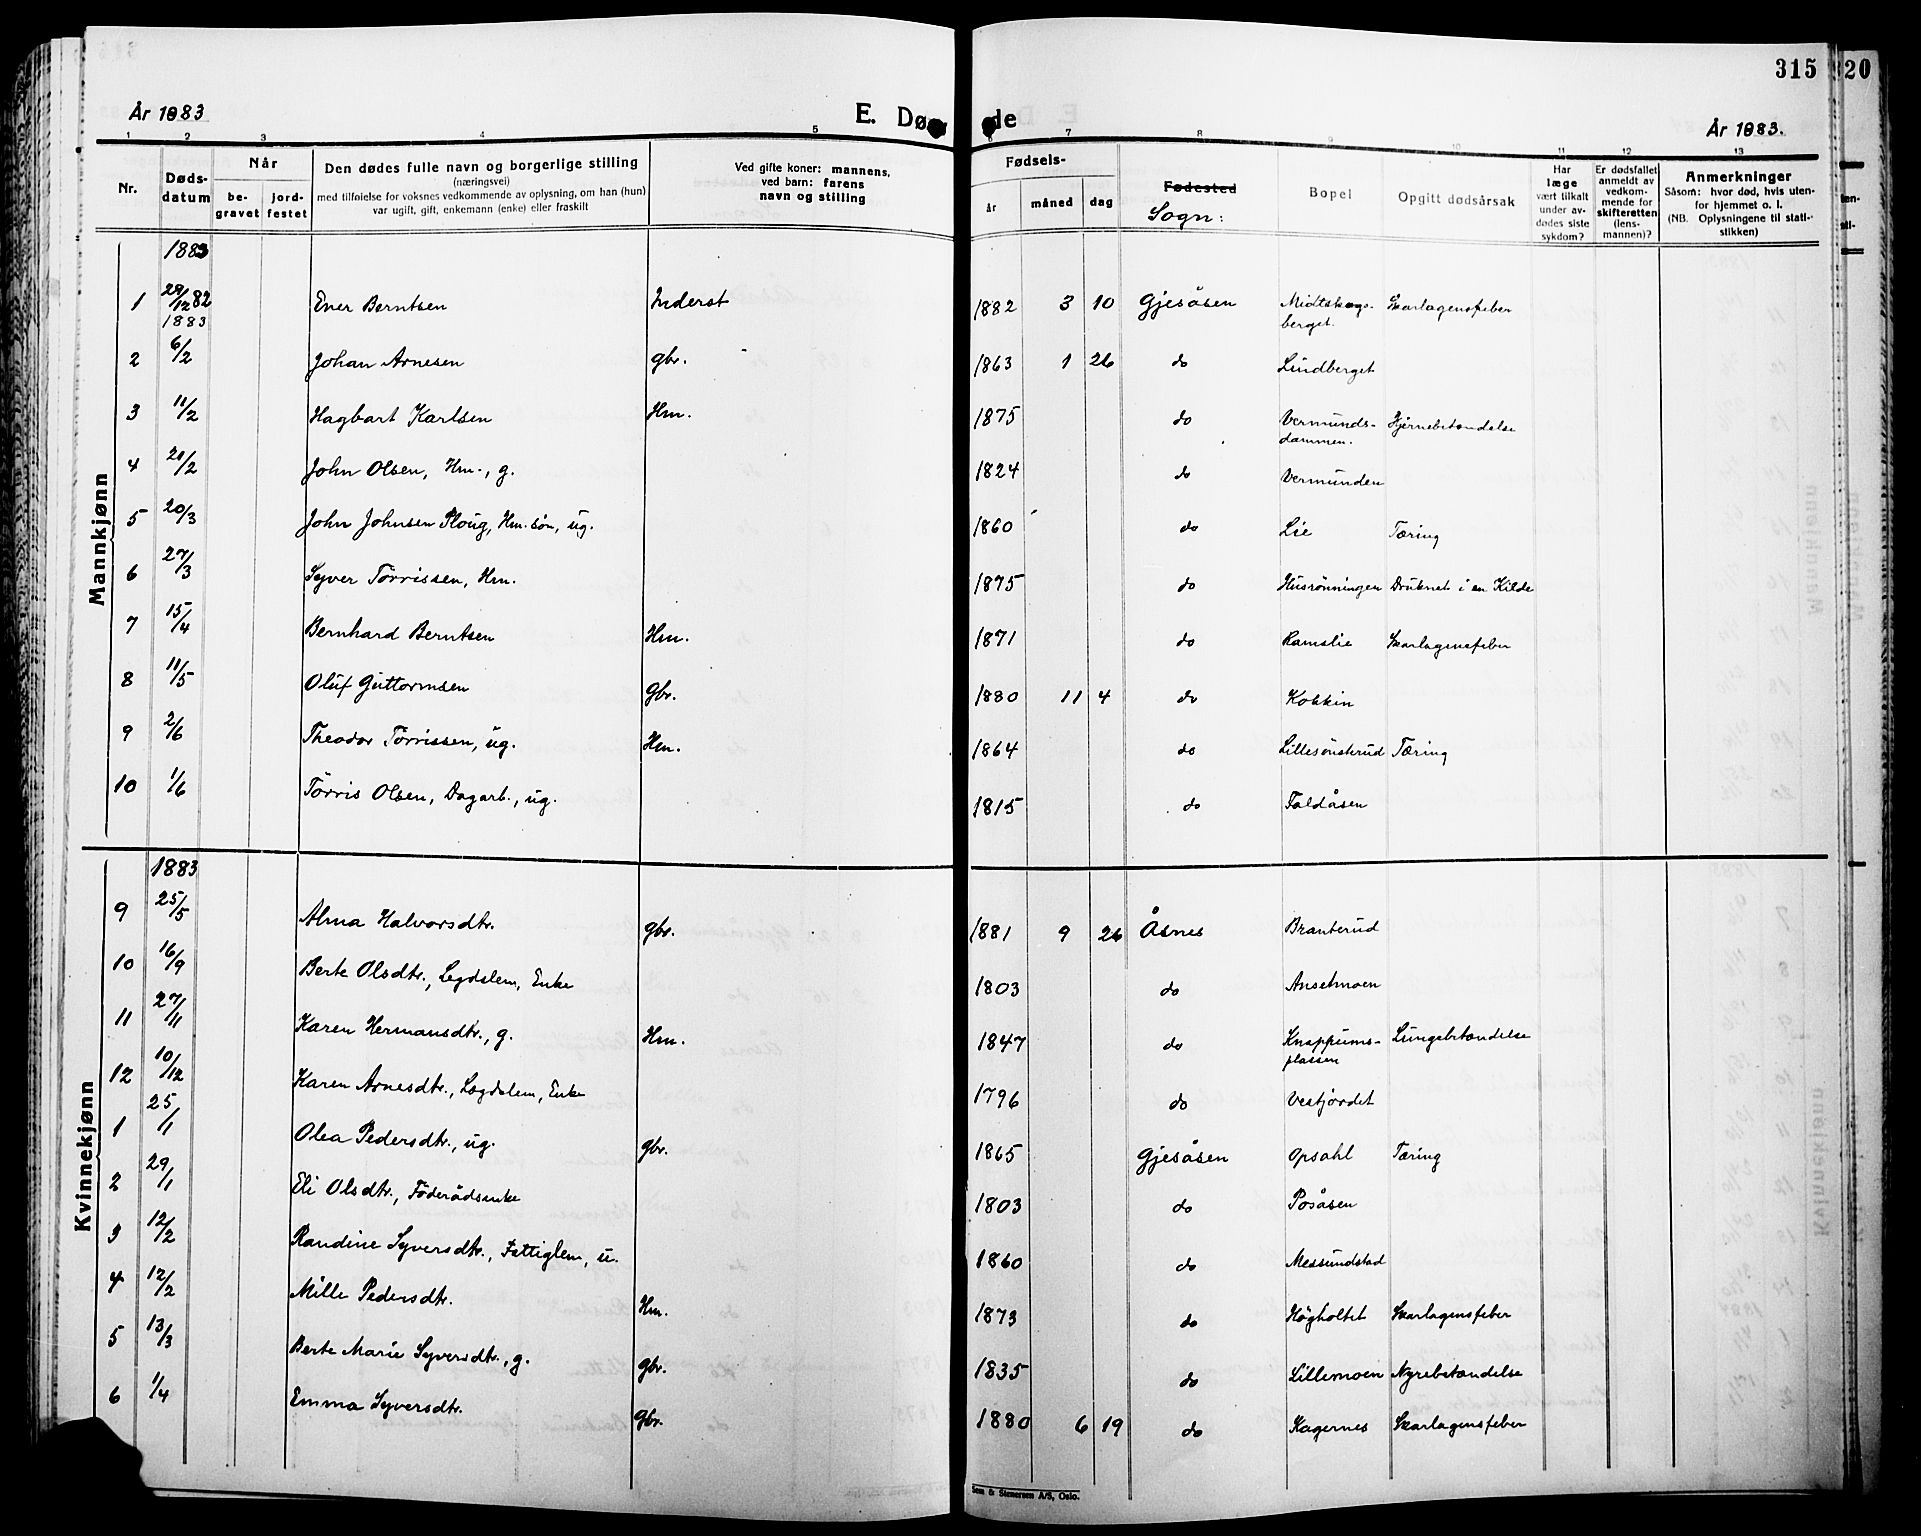 315 320
År 1883
E. Dø de
År 1883.
1 2 3 4 5 7 8 9 10 11 12 13
Nr.
Døds-
datum
Når
be-
gravet
jord-
festet
Den dødes fulle navn og borgerlige stilling
(næringsvei)
med tilføielse for voksnes vedkommende av oplysning, om han (hun)
var ugift, gift, enkemann (enke) eller fraskilt
Ved gifte koner: mannens,
ved barn: farens
navn og stilling
Fødsels-
år måned dag
Fødested
Sogn:
Bopel
Opgitt dødsårsak
Har
læge
vært tilkalt
under av-
dødes siste
sykdom?
Er dødsfallet
anmeldt av
vedkom-
mende for
skifteretten
(lens-
mannen)?
Anmerkninger
Såsom: hvor død, hvis uten-
for hjemmet o. l.
(NB. Oplysningene til stati-
stikken)
Mannkjønn
1883
1 29/12 82 Ener Berntsen Inderst 1882 3 10 Gjesåsen Midtskogs- Skarlagensfeber
1883 berget.
2 6/2 Johan Arnesen gbr. 1863 1 26 do Lindberget
3 11/2 Hagbart Karlsen Hm. 1875 do Vermunds- Hjernebetændelse
dammen.
4 20/2 John Olsen, Hm., g. 1824 do Vermunden
5 20/3 John Johnsen Ploug, Hm. søn, ug. 1860 do Lie Tæring
6 27/3 Syver Tørrissen, Hm. 1875 do Husrønningen Druknet i en Kilde
7 15/4 Bernhard Berntsen Hm. 1871 do Ramslie Skarlagensfeber
8 11/5 Oluf Guttormsen Gbr. 1880 11 4 do Kobkin
9 2/6 Theodor Tørrissen, ug. Hm. 1864 do Lillesønsterud Tæring
10 1/6 Tørris Olsen, Dagarb., ug. 1815 do Faldåsen
Kvinnekjønn
1883
9 25/5 Alma Halvorsdtr. gbr. 1881 9 26 Åsnes Branterud
10 16/9 Berte Olsdtr., Legdslem, Enke 1803 do Anselmoen
11 27/11 Karen Hermansdtr., g. Hm. 1847 do Knappums- Lungebetændelse
plassen
12 10/12 Karen Arnesdtr., Lægdslem, Enke 1796 do Vestjordet
1 25/1 Olea Pedersdtr., ug. gbr. 1865 Gjesåsen Opsahl Tæring
2 29/1 Eli Olsdtr., Föderådsenke 1803 do Posåsen
3 12/2 Randine Syversdtr., Fattiglem, u. 1860 do Messundstad
4 12/2 Mille Pedersdtr. Hm. 1873 do Högholtet Skarlagensfeber
5 13/3 Berte Marie Syversdtr., g. gbr. 1835 do Lillemoen Nyrebetændelse
6 1/4 Emma Syversdtr. Gbr. 1880 6 19 do Kagernes Skarlagensfeber
Sem & Stenersen A/S, Oslo.